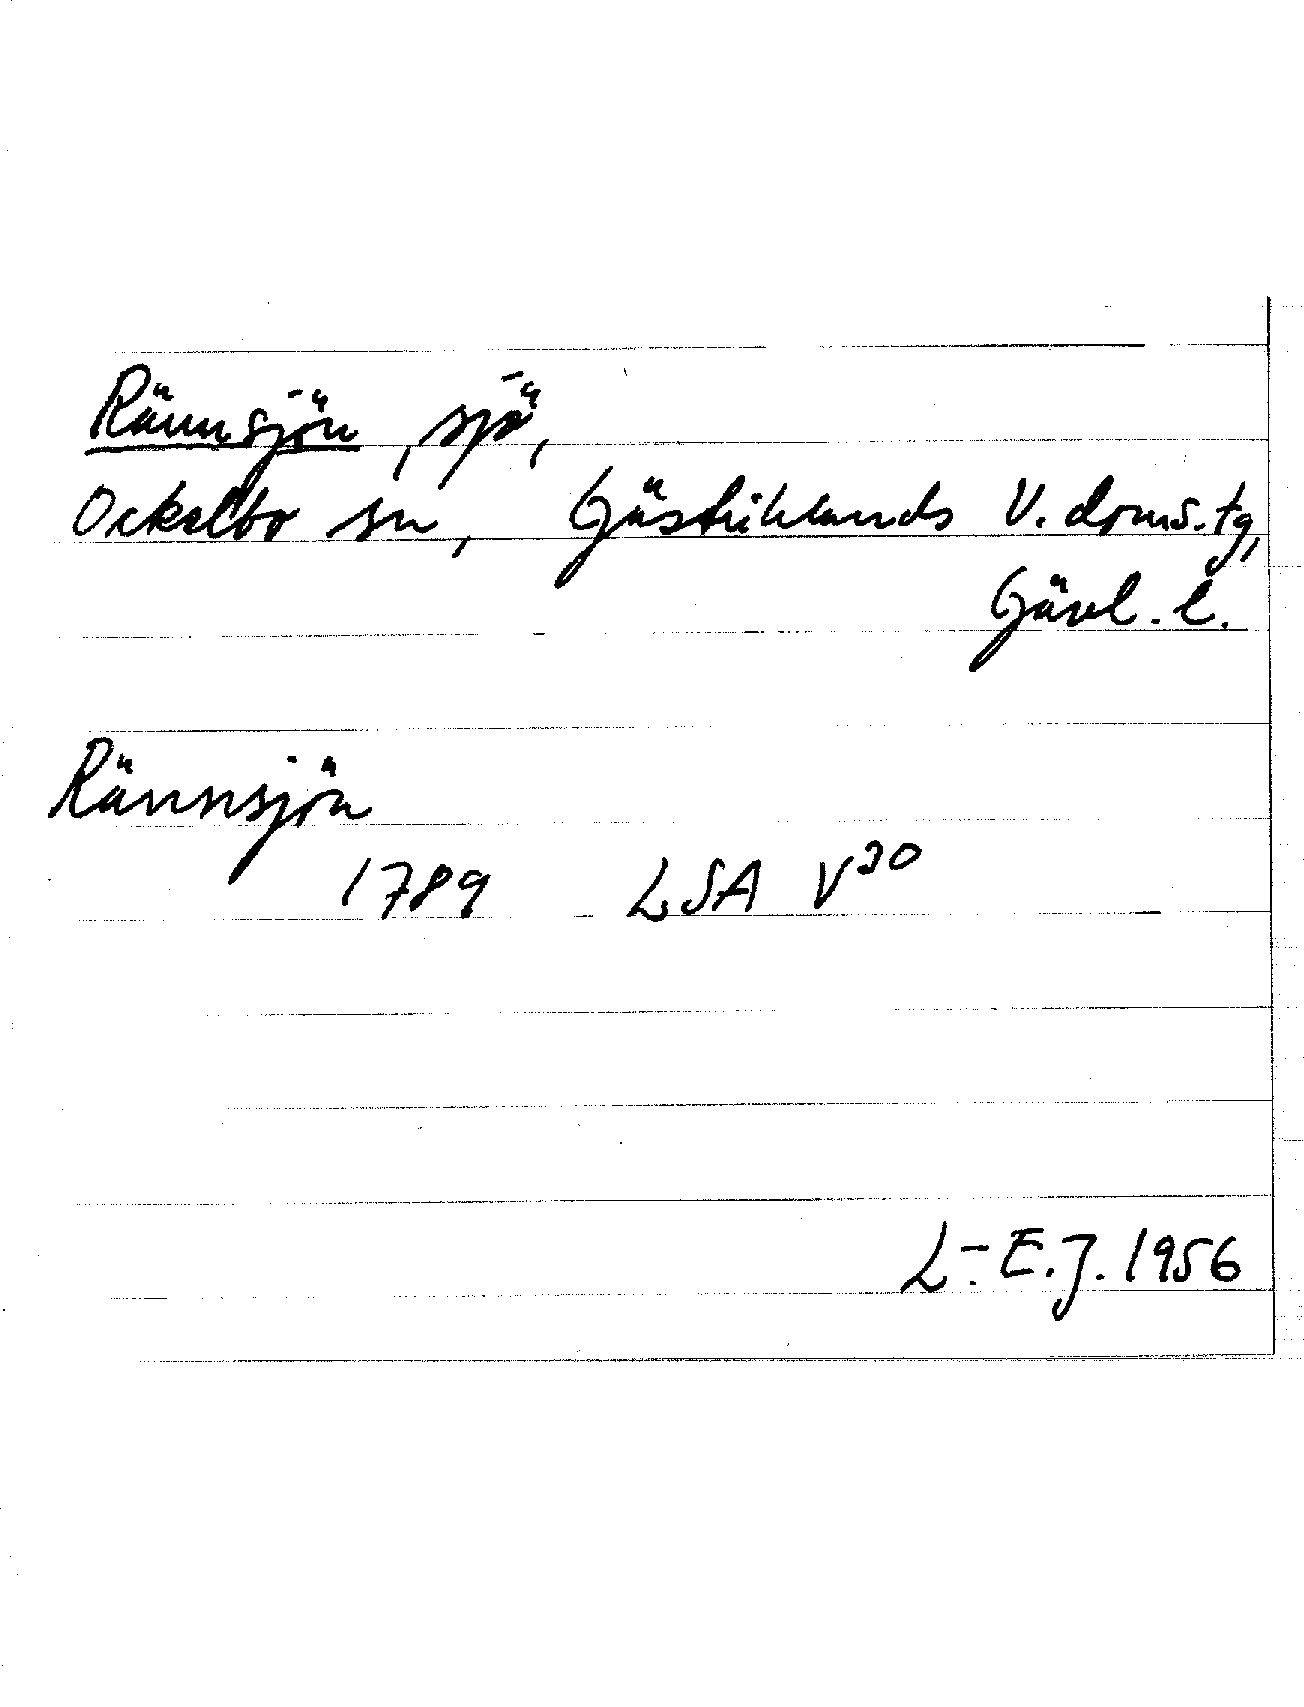 Rännsjön, sjö,
Ockelbo sn, Gästriklands V. doms. tg,
Gävl. l.
Rännsjön
1789 LSA V30
L.-E.J. 1956